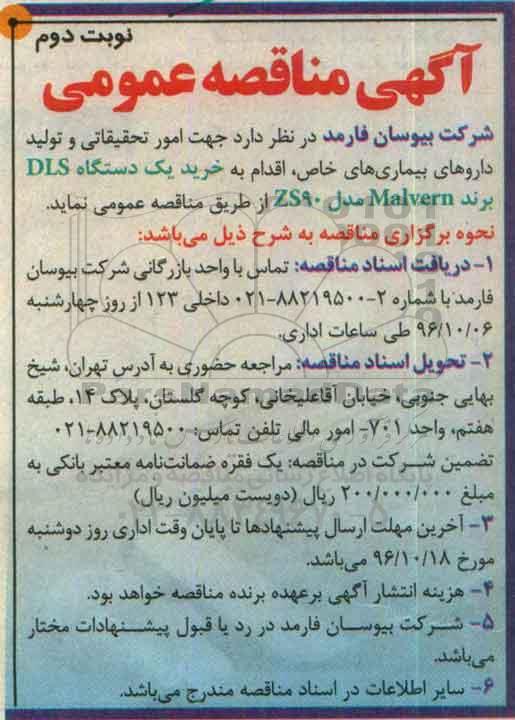 نوبت دوم
آگهی مناقصه عمومی
شرکت بیوسان فارمد در نظر دارد جهت امور تحقیقاتی و تولید
داروهای بیماری‌های خاص، اقدام به خرید یک دستگاه DLS
برند Malvern مدل ZS۹۰ از طریق مناقصه عمومی نماید.
نحوه برگزاری مناقصه به شرح ذیل می‌باشد:
۱- دریافت اسناد مناقصه: تماس با واحد بازرگانی شرکت بیوسان
فارمد با شماره ۲-۸۸۲۱۹۵۰۰-۰۲۱ داخلی ۱۲۳ از روز چهارشنبه
۹۶/۱۰/۰۶ طی ساعات اداری.
۲- تحویل اسناد مناقصه: مراجعه حضوری به آدرس تهران، شیخ
بهایی جنوبی، خیابان آقاعلیخانی، کوچه گلستان، پلاک ۱۴، طبقه
هفتم، واحد ۷۰۱- امور مالی تلفن تماس: ۸۸۲۱۹۵۰۰-۰۲۱
تضمین شرکت در مناقصه: یک فقره ضمانت‌نامه معتبر بانکی به
مبلغ ۲۰۰/۰۰۰/۰۰۰ ریال (دویست میلیون ریال)
۳- آخرین مهلت ارسال پیشنهادها تا پایان وقت اداری روز دوشنبه
مورخ ۹۶/۱۰/۱۸ می‌باشد.
۴- هزینه انتشار آگهی برعهده برنده مناقصه خواهد بود.
۵- شرکت بیوسان فارمد در رد یا قبول پیشنهادات مختار
می‌باشد.
۶- سایر اطلاعات در اسناد مناقصه مندرج می‌باشد.